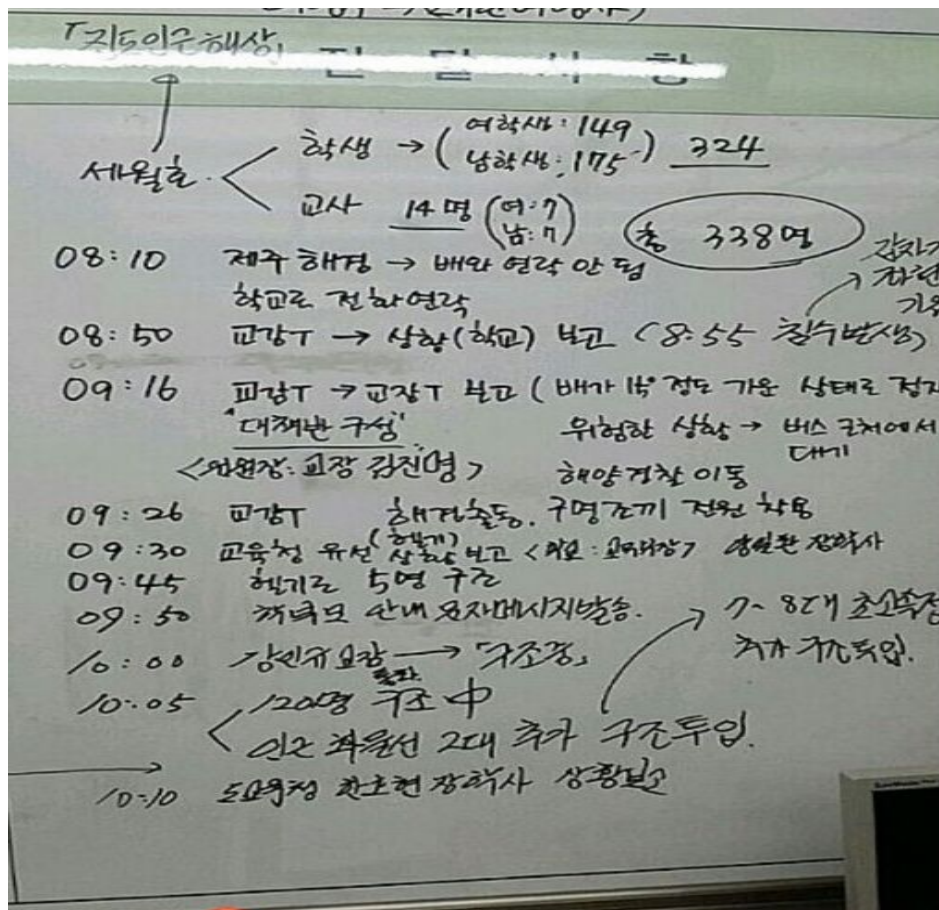 「진도인근해상」
전 달 사 항
세월호
학생 → ( 여학생: 149
남학생: 175 ) 324
교사 14명 ( 여: 7
남: 7 )
총 338명
08:10 제주해경 → 배와 연락 안 됨
학교로 전화연락
08:50 교감T → 상황(학교) 보고 (8:55 침수발생)
갑자기
09:16 교감T → 교장T 보고 ( 배가 15° 정도 기운 상태로 정지
"대책반 구성" 위험한 상황 → 버스 근처에서
대기
<위원장: 교장 김진명> 해양경찰 이동
09:26 교감T 해경출동. 구명조끼 전원 착용
09:30 교육청 유선 상황보고
09:45 헬기로 5명 구조
09:50 학부모 안내 문자메시지발송.
7~8대
추가 구조투입.
10:00 교감 → 「구조중」
10:05 120명 구조 中
인근 화물선 2대 추가 구조투입.
10:10 도교육청 한초현 장학사 상황보고